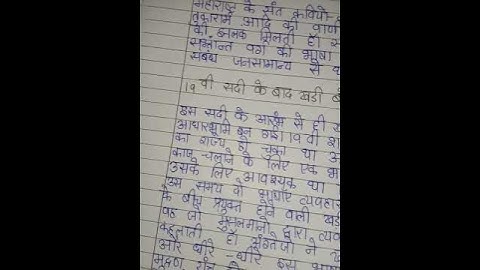 महाराष्ट्र के संत कवियों
तुकाराम आदि की वाणी
की झलक मिलती है
सम्भ्रान्त वर्ग की भाषा
संबंध जनसामान्य से
19 वी सदी के बाद खड़ी
इस सदी के आरंभ से ही
आधारभूमि बन गई। 19 वी
का राज्य हो चुका था
काज चलाने के लिए एक
उसके लिए आवश्यक था
उस समय वो
के बीच प्रयुक्त होने वाली
वह जो मुसलमानो द्वारा
कहलाती है। अंग्रेजो ने
और धीरे-धीरे इस
मुद्रण